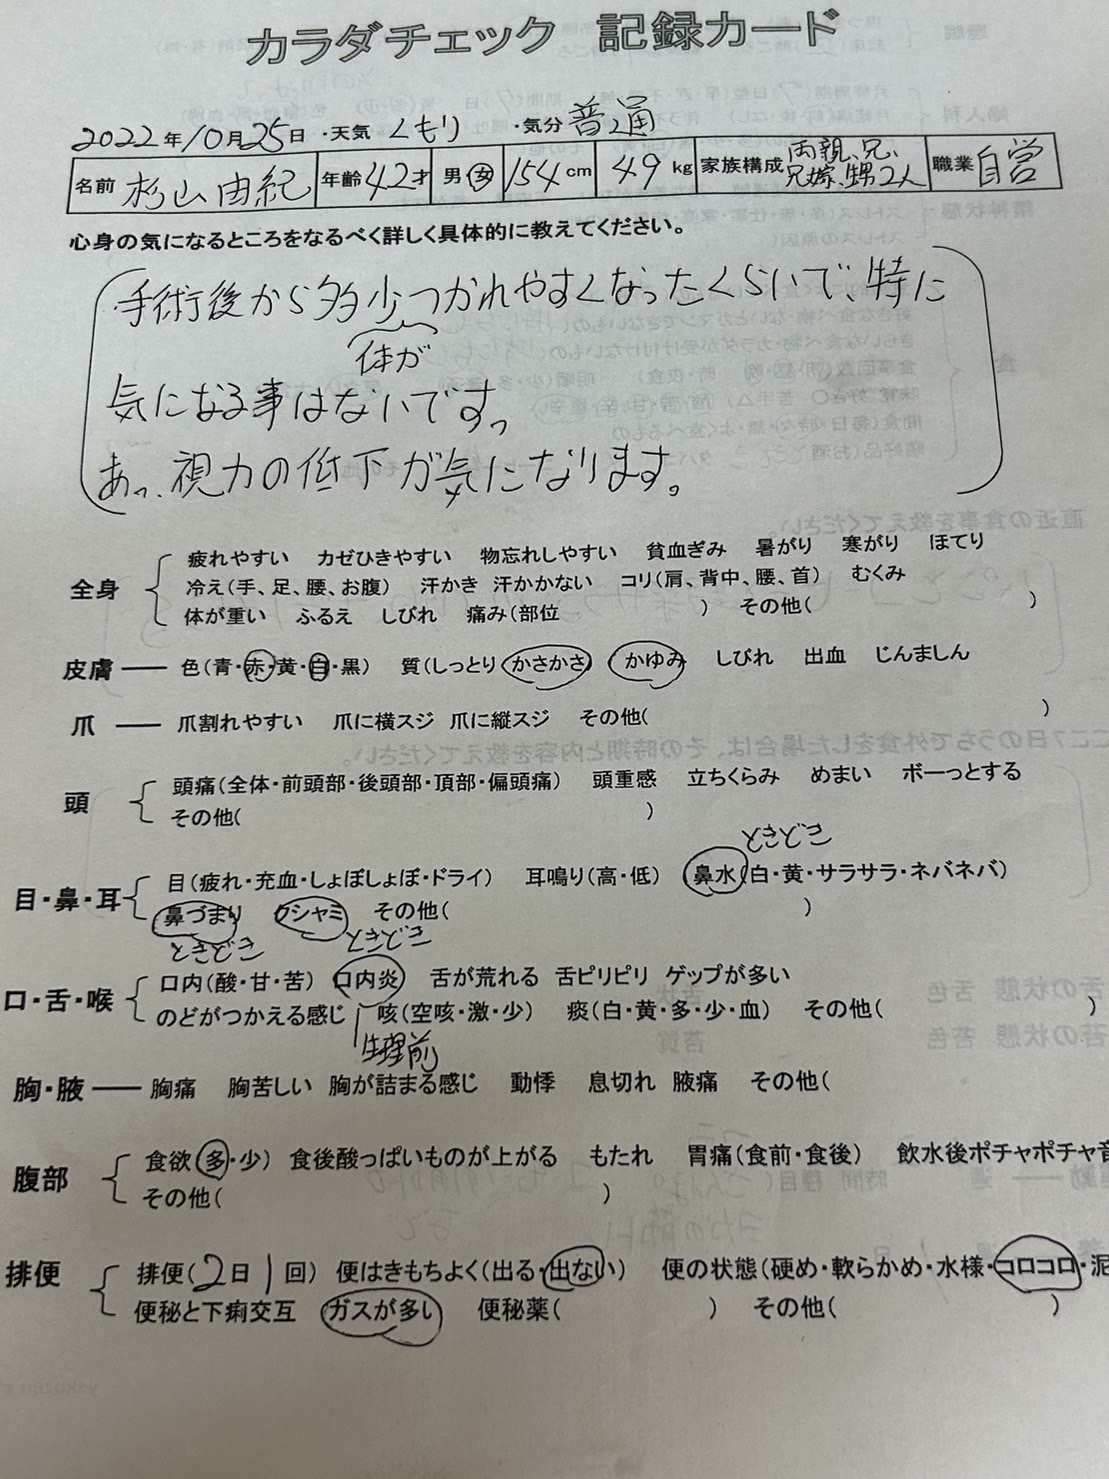 カラダチェック 記録カード
2022年10月25日 ・天気 くもり ・気分 普通
名前 杉山由紀 年齢 42才 男・女 154cm 49kg 家族構成 両親、兄、兄嫁、甥2人 職業 自営
心身の気になるところをなるべく詳しく具体的に教えてください。
手術後から多少つかれやすくなったくらいで、特に
体が
気になる事はないですっ
あっ、視力の低下が気になります。
全身 疲れやすい カゼひきやすい 物忘れしやすい 貧血ぎみ 暑がり 寒がり ほてり
冷え(手、足、腰、お腹) 汗かき 汗かかない コリ(肩、背中、腰、首) むくみ
体が重い ふるえ しびれ 痛み(部位 ) その他( )
皮膚 ― 色(青・赤・黄・白・黒) 質(しっとり かさかさ) かゆみ しびれ 出血 じんましん
爪 ― 爪割れやすい 爪に横スジ 爪に縦スジ その他( )
頭 頭痛(全体・前頭部・後頭部・頂部・偏頭痛) 頭重感 立ちくらみ めまい ボーっとする
その他( )
ときどき
目・鼻・耳 目(疲れ・充血・しょぼしょぼ・ドライ) 耳鳴り(高・低) 鼻水(白・黄・サラサラ・ネバネバ)
鼻づまり クシャミ その他( )
ときどき ときどき
口・舌・喉 口内(酸・甘・苦) 口内炎 舌が荒れる 舌ピリピリ ゲップが多い
のどがつかえる感じ 咳(空咳・激・少) 痰(白・黄・多・少・血) その他( )
生理前
胸・腋 ― 胸痛 胸苦しい 胸が詰まる感じ 動悸 息切れ 腋痛 その他(
腹部 食欲(多・少) 食後酸っぱいものが上がる もたれ 胃痛(食前・食後) 飲水後ポチャポチャ音
その他( )
排便 排便(2日1回) 便はきもちよく(出る・出ない) 便の状態(硬め・軟らかめ・水様・コロコロ・泥
便秘と下痢交互 ガスが多い 便秘薬( ) その他( )